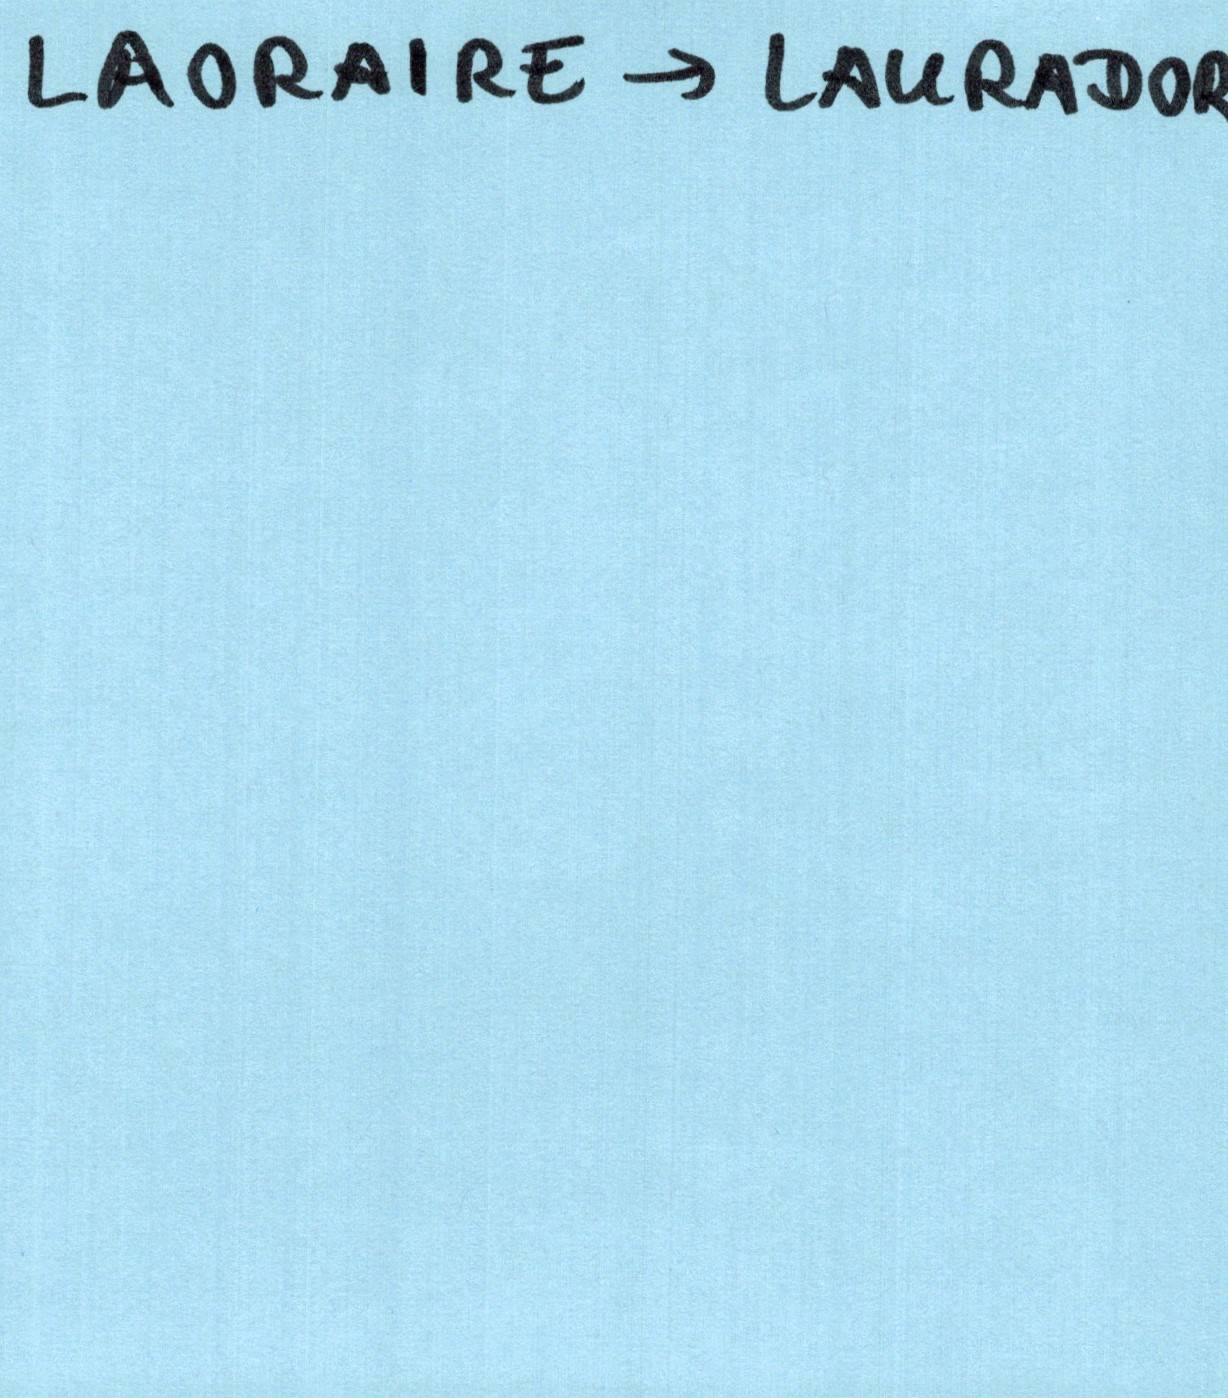 LAORAIRE → LAURADOR